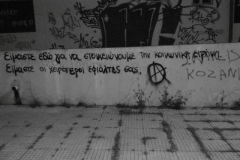 Είμαστε εδώ για να στοιχειώνουμε την κοινωνική ειρήνη...
Είμαστε οι χειρότεροι εφιάλτες σας.
ΚΟΖΑΝ